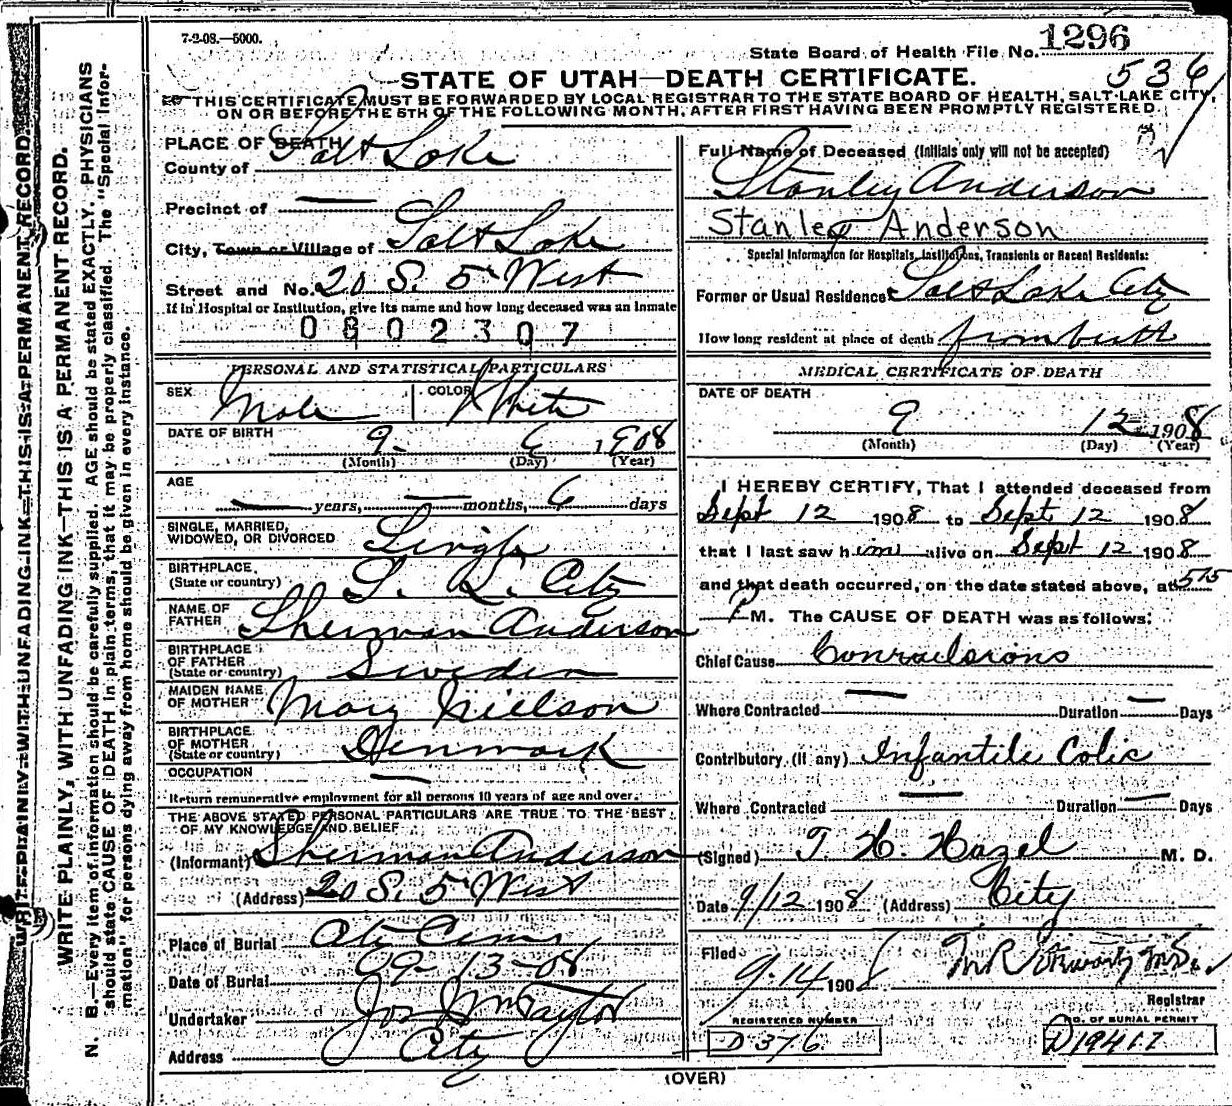 7-2-08.—5000.
State Board of Health File No. 1296
STATE OF UTAH—DEATH CERTIFICATE.
536
THIS CERTIFICATE MUST BE FORWARDED BY LOCAL REGISTRAR TO THE STATE BOARD OF HEALTH, SALT LAKE CITY,
ON OR BEFORE THE 5TH OF THE FOLLOWING MONTH, AFTER FIRST HAVING BEEN PROMPTLY REGISTERED.
WRITE PLAINLY WITH UNFADING INK—THIS IS A PERMANENT RECORD.
WRITE PLAINLY, WITH UNFADING INK—THIS IS A PERMANENT RECORD.
N. B.—Every item of information should be carefully supplied. AGE should be stated EXACTLY. PHYSICIANS
should state CAUSE OF DEATH in plain terms, that it may be properly classified. The "Special Infor-
mation" for persons dying away from home should be given in every instance.
PLACE OF DEATH
County of Salt Lake
Precinct of —
City, Town or Village of Salt Lake
Street and No. 20 S. 5 West
If in Hospital or Institution, give its name and how long deceased was an Inmate
0602307
PERSONAL AND STATISTICAL PARTICULARS
SEX Male COLOR White
DATE OF BIRTH 9 - 6 1908
(Month) (Day) (Year)
AGE
— years, — months, 6 days
SINGLE, MARRIED,
WIDOWED, OR DIVORCED Single
BIRTHPLACE
(State or country) S. L. City
NAME OF
FATHER Sherman Anderson
BIRTHPLACE
OF FATHER
(State or country) Sweden
MAIDEN NAME
OF MOTHER Mary Nielson
BIRTHPLACE
OF MOTHER
(State or country) Denmark
OCCUPATION —
Return remunerative employment for all persons 10 years of age and over.
THE ABOVE STATED PERSONAL PARTICULARS ARE TRUE TO THE BEST
OF MY KNOWLEDGE AND BELIEF
(Informant) Sherman Anderson
(Address) 20 S. 5 West
Place of Burial City Cem
Date of Burial 9-13-08
Undertaker Jos Wm Taylor
Address City
Full Name of Deceased (Initials only will not be accepted)
Stanley Anderson
Stanley Anderson
Special Information for Hospitals, Institutions, Transients or Recent Residents:
Former or Usual Residence Salt Lake City
How long resident at place of death from birth
MEDICAL CERTIFICATE OF DEATH
DATE OF DEATH
9 12 1908
(Month) (Day) (Year)
I HEREBY CERTIFY, That I attended deceased from
Sept 12 1908 to Sept 12 1908
that I last saw him alive on Sept 12 1908
and that death occurred, on the date stated above, at 515
P M. The CAUSE OF DEATH was as follows:
Chief Cause Convulsions
Where Contracted — Duration — Days
Contributory (if any) Infantile Colic
Where Contracted — Duration — Days
(Signed) T. H. Hazel M. D.
Date 9/12 1908 (Address) City
Filed 9-14 1908
Registrar
REGISTERED NUMBER D 376
NO. OF BURIAL PERMIT D19417
(OVER)